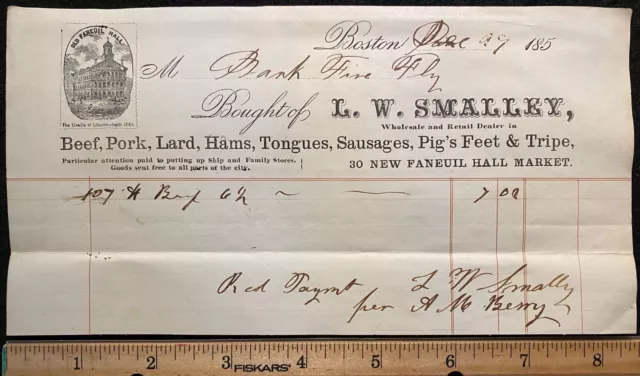 OLD FANEUIL HALL
The Cradle of Liberty
Boston Dec 29 185
M Bark Fire Fly
Bought of L. W. SMALLEY,
Wholesale and Retail Dealer in
Beef, Pork, Lard, Hams, Tongues, Sausages, Pig's Feet & Tripe,
Particular attention paid to putting up Ship and Family Stores.
Goods sent free to all parts of the city.
30 NEW FANEUIL HALL MARKET.
107 # Beef 6½ 7 00
Rcd Paymt L W Smally
per A M Berry
1 2 3 4 5 6 7 8
FISKARS